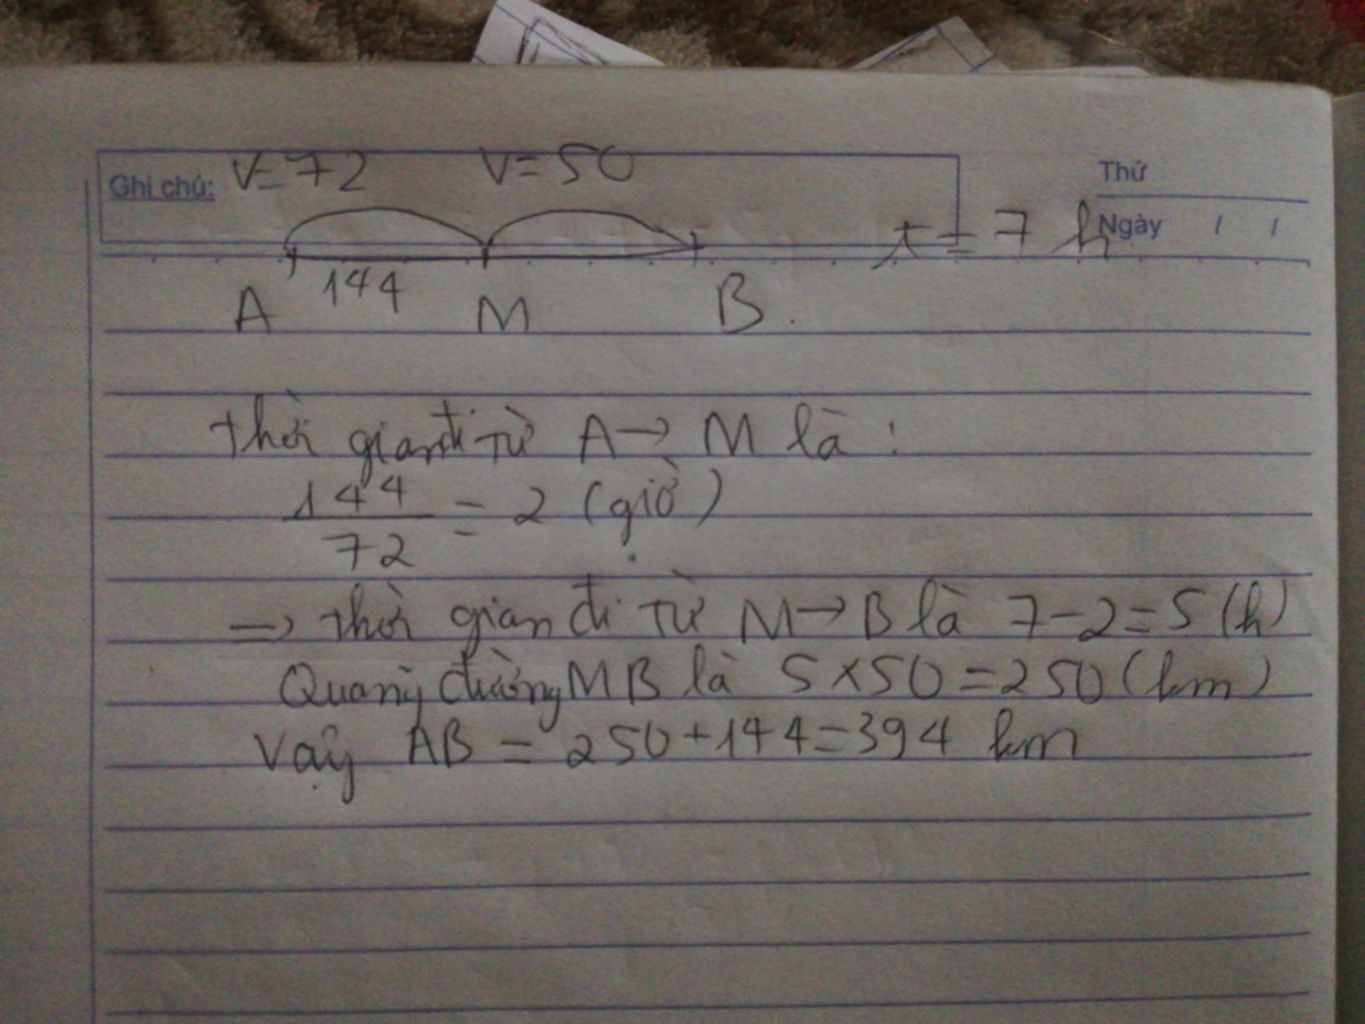 Ghi chú: V=72 V=50 Thứ
t=7 h Ngày / /
144
A M B.
thời gian đi từ A→ M là :
144/72 = 2 (giờ)
=> thời gian đi từ M→B là 7-2=5 (h)
Quãng đường MB là 5×50=250(km)
Vậy AB = 250+144=394 km